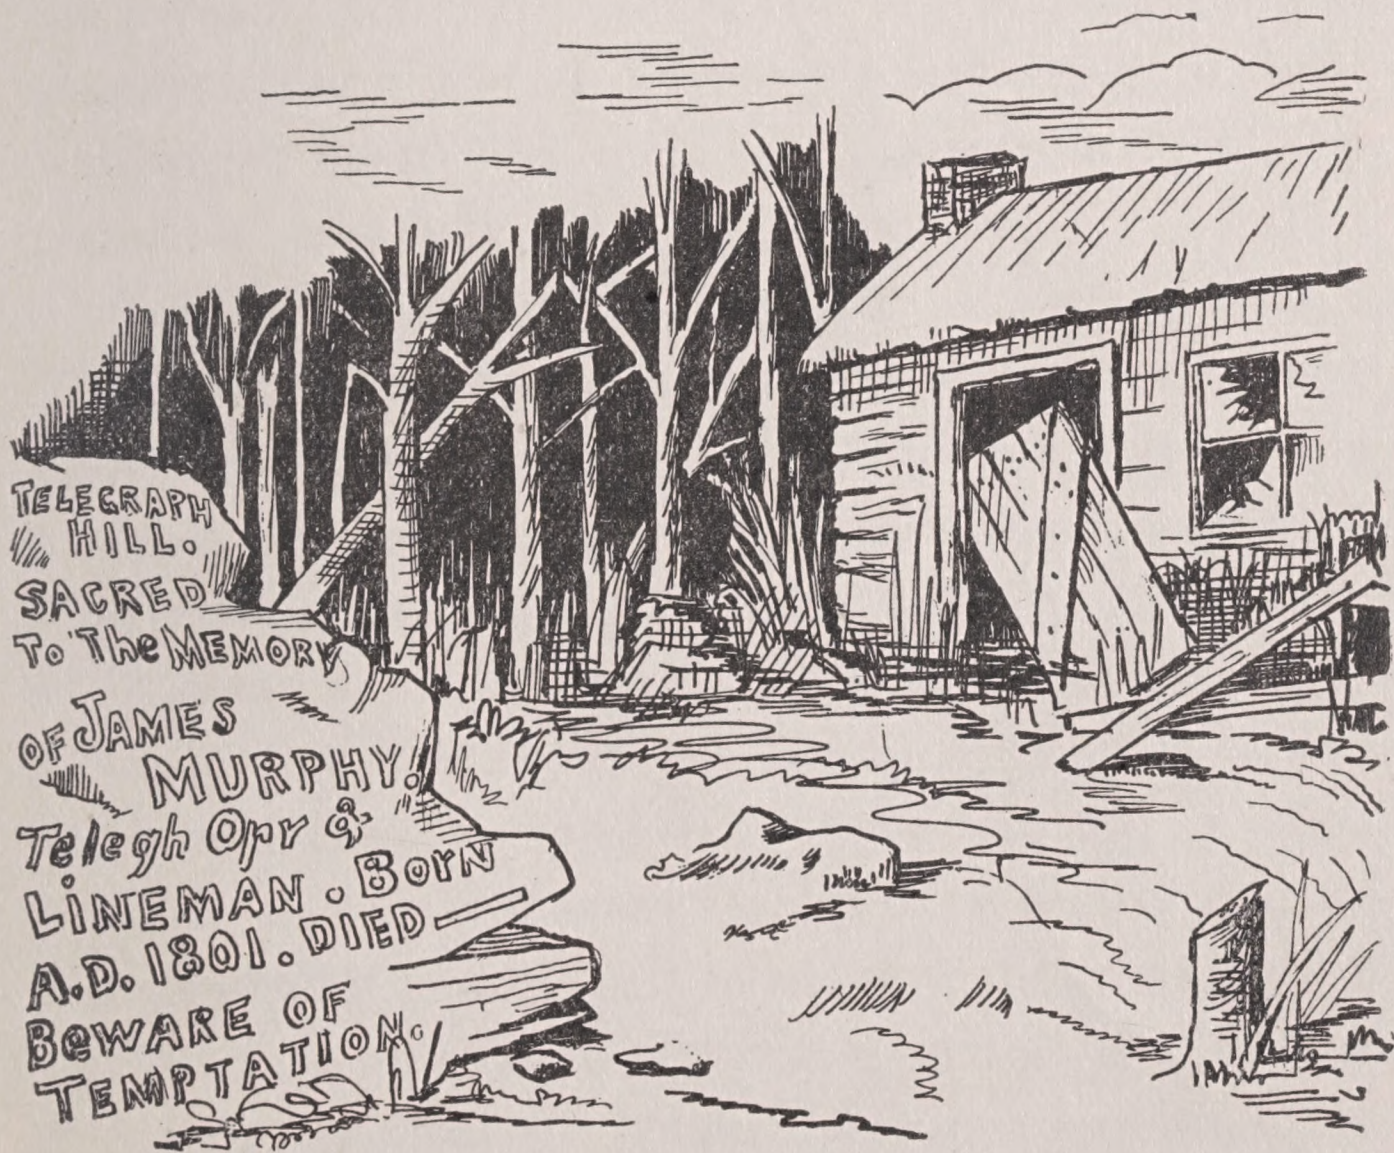 TELEGRAPH
HILL.
SACRED
To The MEMORY
OF JAMES
MURPHY.
Telegh Opr &
LiNEMAN. Born
A.D. 1801. DIED—
BeWARE OF
TEMPTATION.